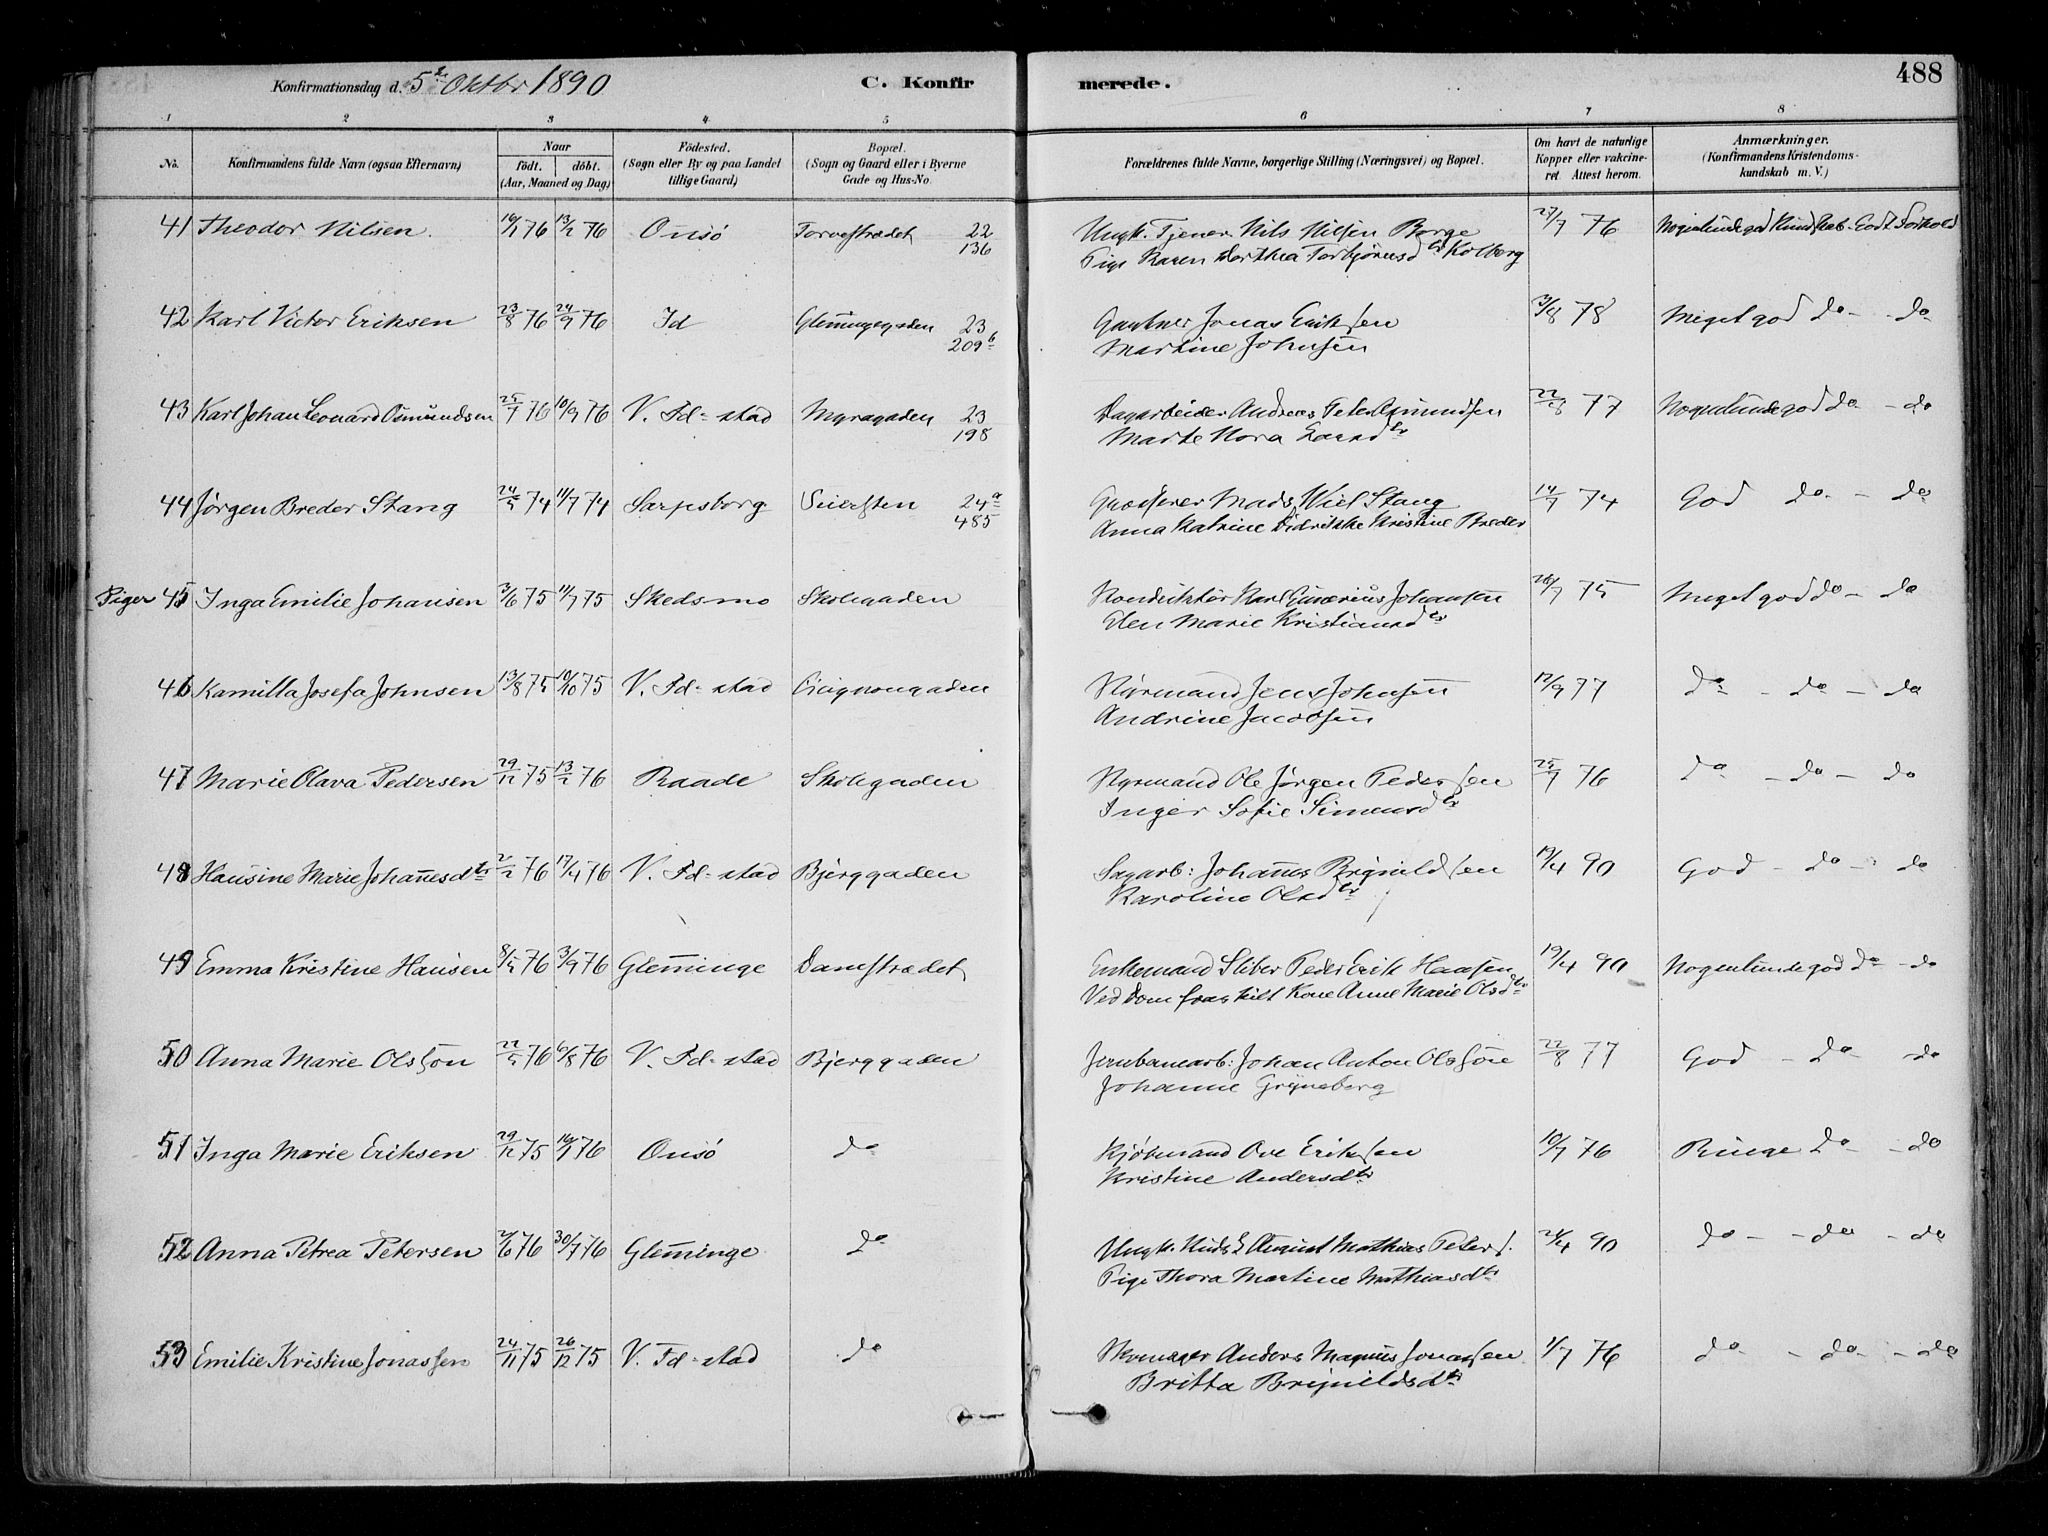 Konfirmationsdag d. 5te Oktbr 1890 C. Konfirmerede. 488
1 2 3 4 5 6 7 8
No. Konfirmandens fulde Navn (ogsaa Efternavn) Naar födt. döbt. (Aar, Maaned og Dag) Födested. (Sogn eller By og paa Landet tillige Gaard) Bopæl. (Sogn og Gaard eller i Byerne Gade og Hus-No. Forældrenes fulde Navne, borgerlige Stilling (Næringsvei) og Bopæl. Om havt de naturlige Kopper eller vakcineret Attest herom. Anmærkninger. (Konfirmandens Kristendomskundskab m. V.)
41 Theodor Nilsen 16/1 76 13/2 76 Onsö Torvestrædet 22 Ungk. Tjener Nils Nilsen Borge 27/7 76 Nogenlunde god Kundskab - Godt Forhold
136 Pige Karen Dorthea Torbjörnsdtr Kolberg
42 Karl Victor Eriksen 23/8 76 24/9 76 Id Glemmegaden 23 Gartner Jonas Eriksen 3/8 78 Meget god do - do
209b Martine Johnsen
43 Karl Johan Leonard Osmundsen 25/7 76 10/9 76 V. Fd-stad Myragaden 23 Dagarbeider Andreas Peter Osmundsen 22/8 77 Nogenlunde god do - do
198 Marte Nora Larsdtr
44 Jørgen Breder Stang 24/5 74 11/7 74 Sarpsborg Seiersten 24a Grosserer Mads Wiel Stang 14/7 74 God do - do
485 Anna Katrine Didrikke Kristine Breder
Piger 45 Inga Emilie Johansen 3/6 75 11/7 75 Skedsmo Skolegaden Konduktör Karl Gunerius Johansen 26/7 75 Meget god do - do
Elen Marie Kristiansdtr
46 Kamilla Josefa Johnsen 13/8 75 10/10 75 V. Fd-stad Cicignongaden Styrmand Jens Johnsen 17/9 77 do - do - do
Andrine Jacobsen
47 Marie Olava Pedersen 29/12 75 13/2 76 Raade Skolegaden Styrmand Ole Jörgen Pedersen 25/7 76 do - do - do
Inger Sofie Simensdtr
48 Hansine Marie Johannesdtr 2/2 76 17/4 76 V. Fd-stad Bjerggaden Sagarb: Johannes Brynildsen 19/4 90 God - do - do
Karoline Olsdtr
49 Emma Kristine Hansen 8/5 76 3/9 76 Glemminge Damstrædet Enkemand Sliber Peder Erik Hansen 19/4 90 Nogenlunde god do - do
Ved Dom fraskilt Kone Anne Marie Olsdtr
50 Anna Marie Olsson 22/5 76 6/8 76 V. Fd-stad Bjerggaden Jernbanearb: Johan Anton Olsson 22/8 77 God - do - do
Johanne Gryneberg
51 Inga Marie Eriksen 29/12 75 16/1 76 Onsö do Kjöbmand Ove Eriksen 10/7 76 Ringe do - do
Kristine Andersdtr
52 Anna Petrea Petersen 2/6 76 30/7 76 Glemminge do Ungk. August Mathias Peters. 21/4 90 do - do - do
Pige Thora Martine Mathiasdtr
53 Emilie Kristine Jonassen 24/11 75 26/12 75 V. Fd-stad do Skomager Anders Magnus Jonassen 1/7 76 do - do - do
Britta Brynildsdtr